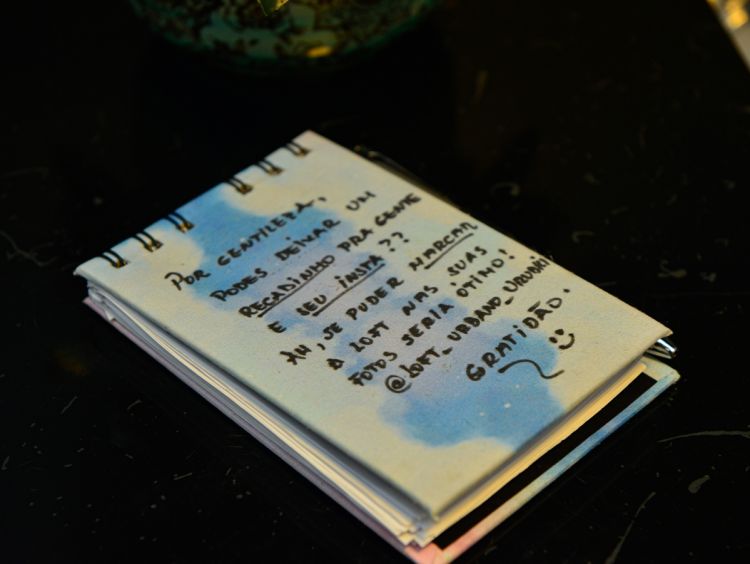 POR GENTILEZA,
PODES DEIXAR UM
RECADINHO PRA GENTE
E SEU INSTA??
AH, SE PUDER MARCAR
A LOFT NAS SUAS
FOTOS SERIA ÓTIMO!
@LOFT_URBANO_URUBICI
GRATIDÃO.